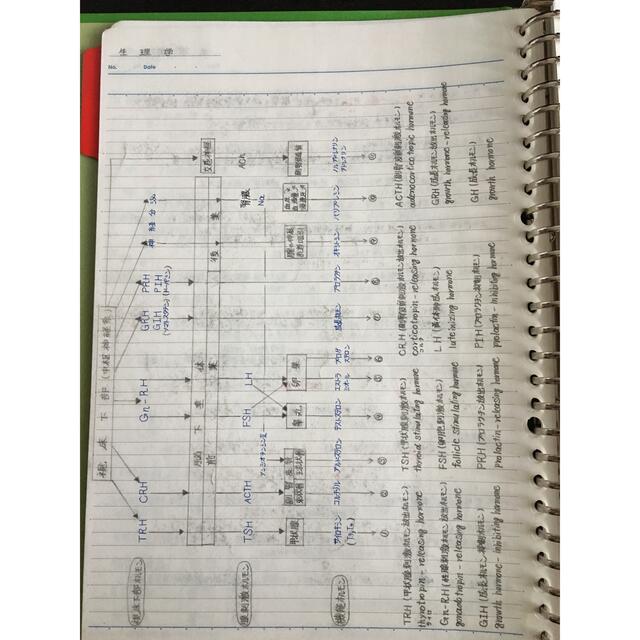 生理学
No.
Date
視床下部(中枢神経系)
TRH
CRH
Gn-RH
GRH
GIH
(ソマトスタチン)
PRH
PIH
(ドーパミン)
神経分泌
視床下部ホルモン
脳下垂体
前葉
後葉
交感神経
TSH
ACTH
FSH
LH
腎臓
Na
ACh
腺刺激ホルモン
甲状腺
副腎皮質
卵巣
副腎髄質
サイロキシン
(T3,T4)
コルチゾル
アルドステロン
テストステロン
プロラクチン
オキシトシン
バソプレシン
ノルアドレナリン
アドレナリン
機能ホルモン
TRH(甲状腺刺激ホルモン放出ホルモン)
thyrotropin-releasing hormone
Gn-RH(性腺刺激ホルモン放出ホルモン)
gonadotropin-releasing hormone
GIH(成長ホルモン抑制ホルモン)
growth hormone-inhibiting hormone
TSH(甲状腺刺激ホルモン)
thyroid stimulating hormone
FSH(卵胞刺激ホルモン)
follicle stimulating hormone
PRH(プロラクチン放出ホルモン)
prolactin-releasing hormone
CRH(副腎皮質刺激ホルモン放出ホルモン)
corticotropin-releasing hormone
LH(黄体形成ホルモン)
luteinizing hormone
PIH(プロラクチン抑制ホルモン)
prolactin-inhibiting hormone
ACTH(副腎皮質刺激ホルモン)
adrenocorticotropic hormone
GRH(成長ホルモン放出ホルモン)
growth hormone-releasing hormone
GH(成長ホルモン)
growth hormone